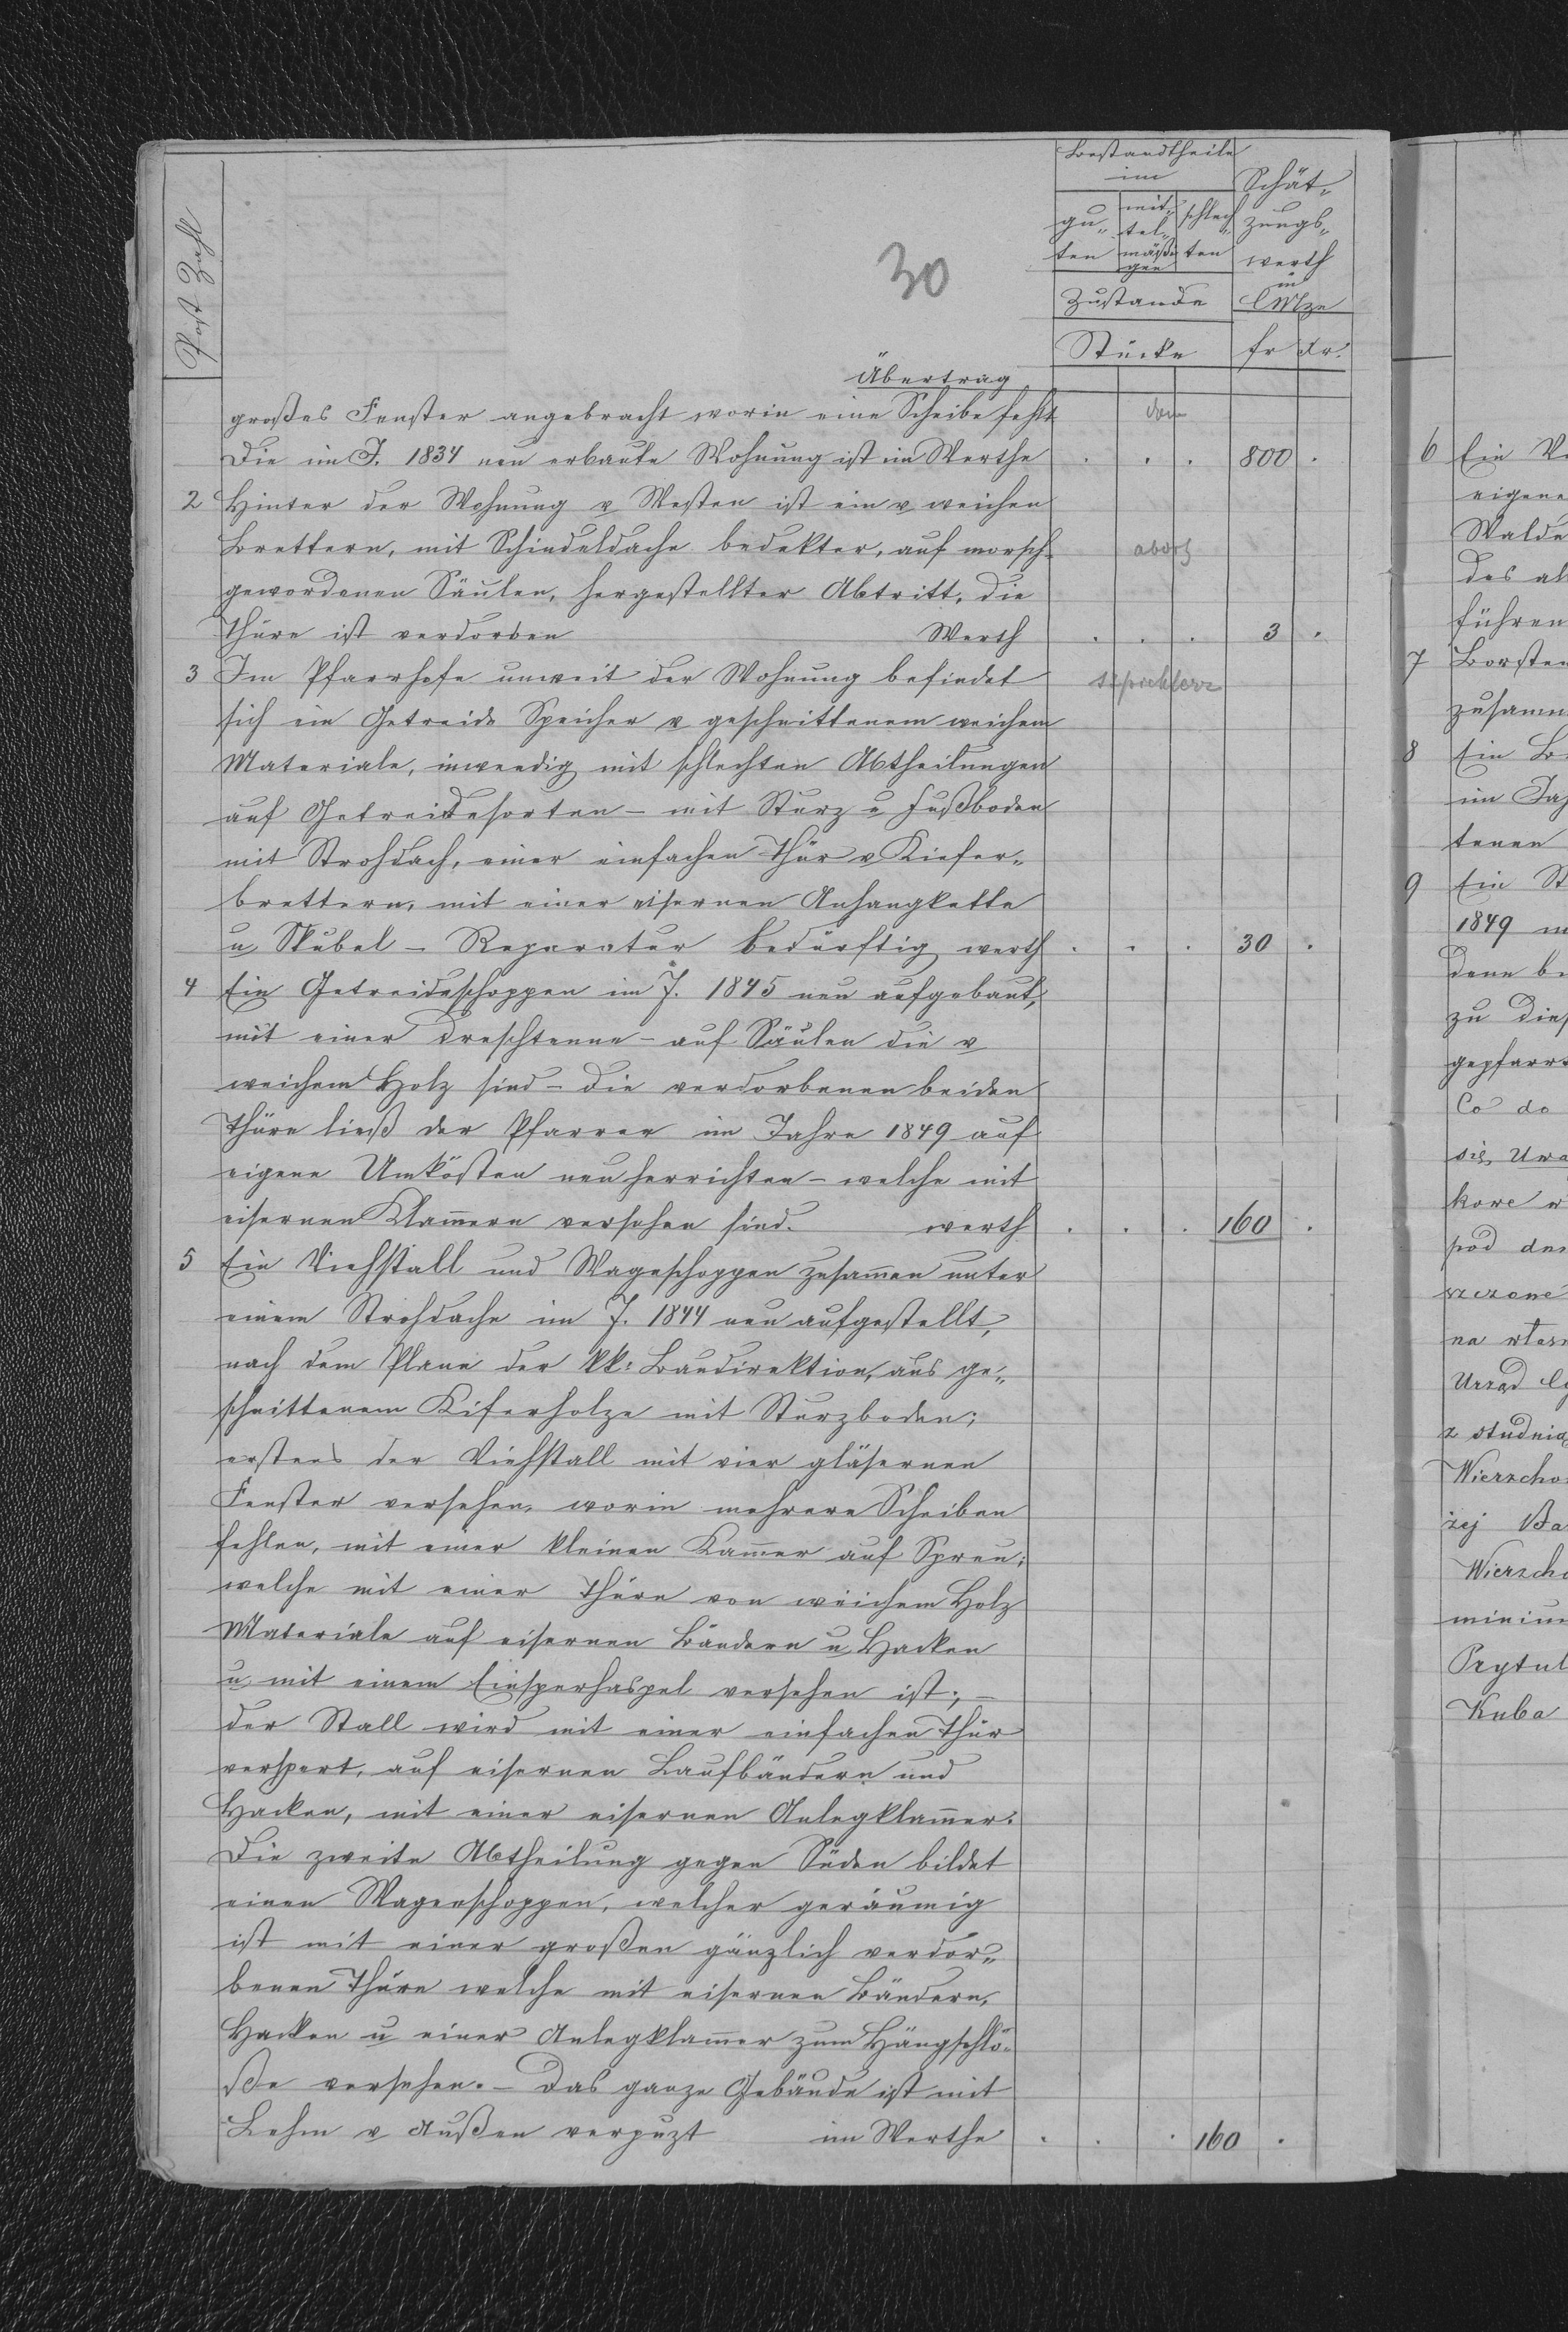 Post Zahl
30
Bestandtheile
im
gu„
ten
mit„
tel„
mäßi
gen
schlech
ten
Zustande
Stücke
Schät„
zungs„
werth
in
CMze
fr xr.
Übertrag
großes Fenster angebracht worin eine Scheibe fehlt
dom
Die im J. 1834 neu erbaute Wohnung ist im Werthe . . . 800 .
2 Hinter der Wohnung v Westen ist ein v weichen
Brettern, mit Schindeldache bedekter, auf morsch
gewordenen Säulen, hergestellter Abtritt, die
Thüre ist verdorben Werth . . . 3 .
3 Im Pfarrhofe unweit der Wohnung befindet
sich ein Getreide Speicher v geschnittenem weichem
Materiale, inwendig mit schlechten Abtheilungen
auf Getreidesorten – mit Sturz u Fußboden
mit Strohdach, einer einfachen Thür v Kiefer„
brettern, mit einer eisernen Anhangkette
u Skubel – Reparatur bedürftig werth . . . 30 .
4 Ein Getreideschoppen im J. 1845 neu aufgebaut,
mit einer Dreschtenne – auf Säulen die v
weichem Holz sind – die verdorbenen beiden
Thüre ließ der Pfarrer im Jahre 1849 auf
eigene Umkösten neu herrichten – welche mit
eisernen Klamern versehen sind. werth . . . 160 .
5 Ein Viehstall und Wageschoppen zusamen unter
einem Strohdache im J. 1844 neu aufgestellt,
nach dem Plane der kk: Baudirektion, aus ge„
schnittenem Kiferholze mit Sturzboden;
erstens der Viehstall mit vier gläsernen
Fenster versehen, worin mehrere Scheiben
fehlen, mit einer kleinen Kamer auf Spreu;
welche mit einer Thüre von weichem Holz
Materiale auf eisernen Bändern u Hacken
u mit einem Einsperhaspel versehen ist; –
der Stall wird mit einer einfachen Thür
verspert, auf eisernen Laufbändern und
Hacken, mit einer eisernen Anlegklamer.
Die zweite Abtheilung gegen Süden bildet
einen Wagenschoppen, welcher geräumig
ist mit einer großen gänzlich verdor„
benen Thüre welche mit eisernen Bändern,
Hacken u einer Anlegklamer zum Hängschlö„
ße versehen. – Das ganze Gebäude ist mit
Lehm v Außen verpuzt im Werthe . . . 160 .
6 Ein
eigene
Walde
des al
führen
7 Borsten
zusamm
8 Ein
im Jah
tenen
9 Ein St
1849
denn
zu dies
gepfarrt
Co do
się, Urz
kowe
pod
szczone
na własn
Urząd
z studnią
Wierzcho
Wierzch
minium
Prytul
Kuba